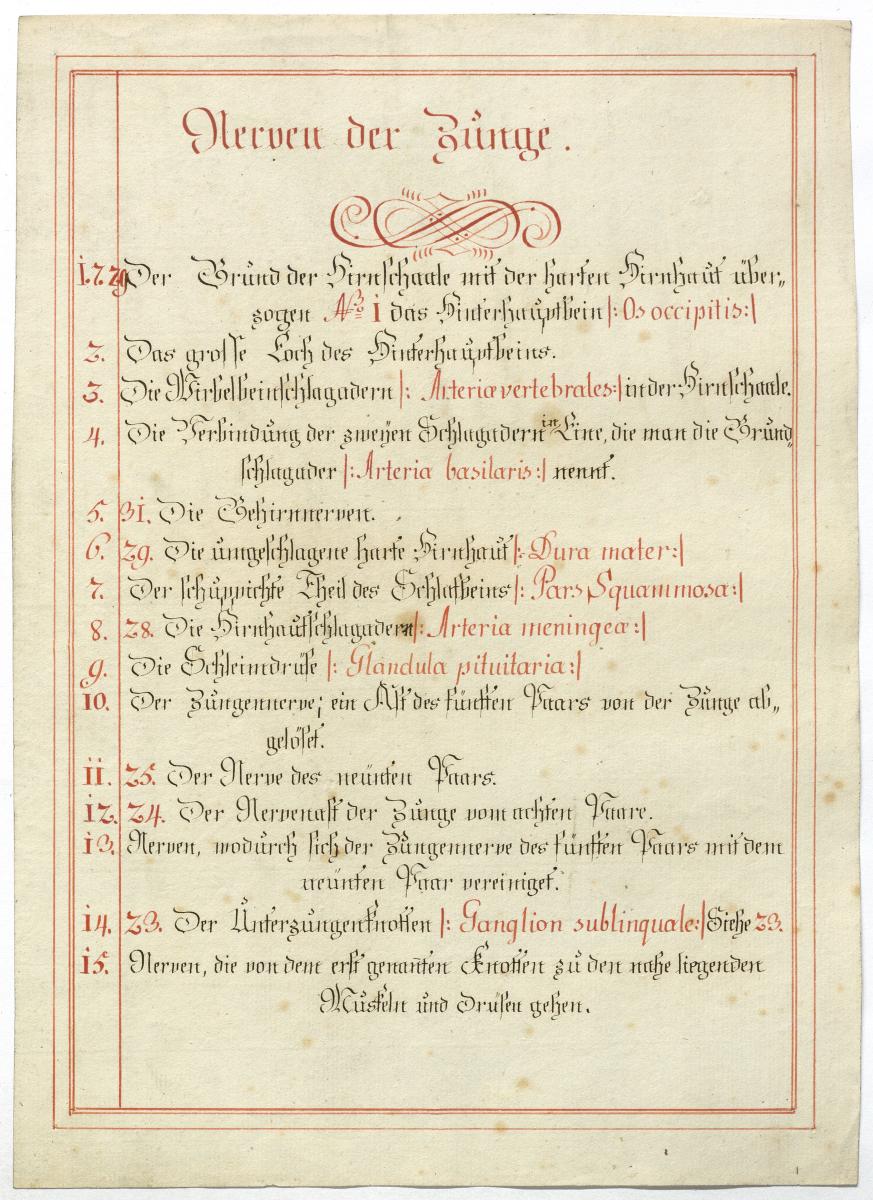 Nerven der Zunge.
1. 7. 29 Der Grund der Hirnschaale mit der harten Hirnhaut über„
zogen No 1 das Hinterhauptbein |: Os occipitis :|
2. Das grosse Loch des Hinterhauptbeins.
3. Die Wirbelbeinschlagadern |: Arteriæ vertebrales :| in der Hirnschaale.
4. Die Verbindung der zweyen Schlagadern in Eine, die man die Grund„
schlagader |: Arteria basilaris :| nennt.
5. 31. Die Gehirnnerven.
6. 29. Die umgeschlagene harte Hirnhaut |: Dura mater :|
7. Der schuppichte Theil des Schlafbeins |: Pars Squammosa :|
8. 28. Die Hirnhautschlagadern |: Arteria meningeæ :|
9. Die Schleimdrüse |: Glandula pituitaria :|
10. Der Zungennerve; ein Ast des fünften Paars von der Zunge ab„
gelöset.
11. 25. Der Nerve des neünten Paars.
12. 24. Der Nervenast der Zunge vom achten Paare.
13. Nerven, wodurch sich der Zungennerve des fünften Paars mit dem
neünten Paar vereiniget.
14. 23. Der Unterzungenknotten |: Ganglion sublinquale :| Siehe 23.
15. Nerven, die von dem erst genanten Knotten zu den nahe liegenden
Muskeln und Drüsen gehen.